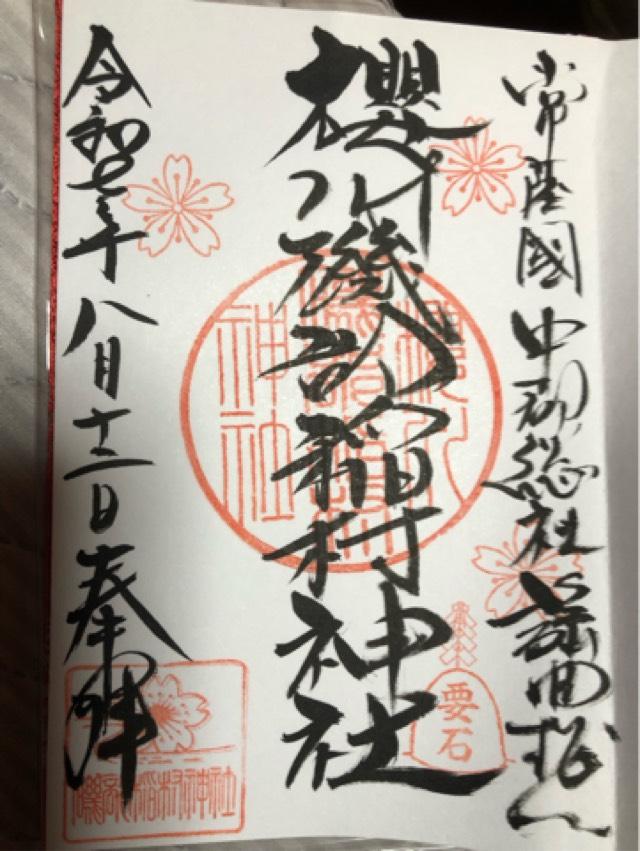 常陸國中郡総社謡曲桜川
櫻川磯部稲村神社
要石
令和七年八月十二日奉拝
磯部稲村神社